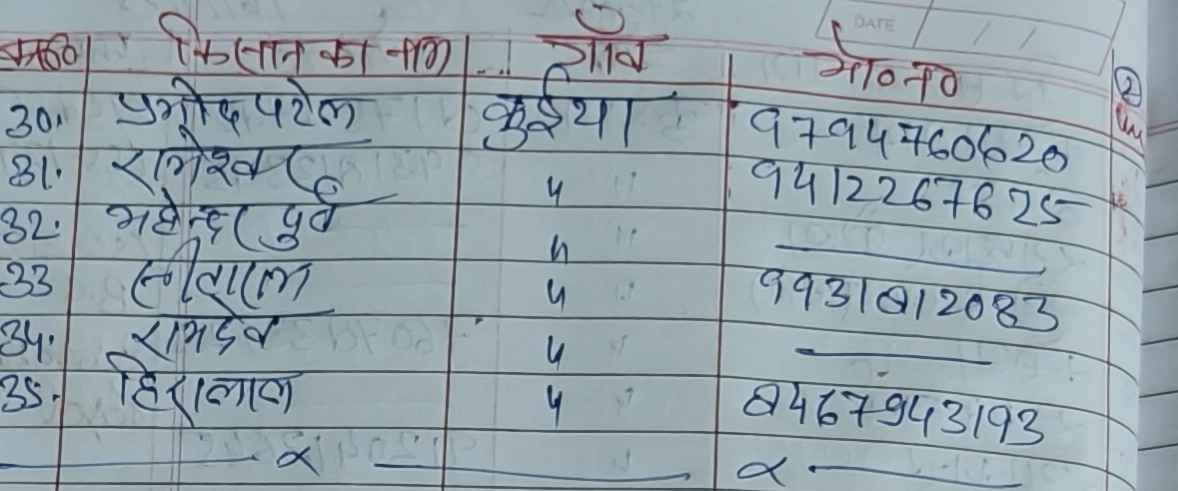 DATE
क्र०सं० किसान का नाम गाँव मो०नं०
②
30. प्रमोद पटेल कुईया 9794760620
31. रामेश्वर " 9412267625
32. महेन्द्र पुर्व " —
33 सीताराम " 9931812083
34. रामदेव " —
35. हिरालाल " 8467943193